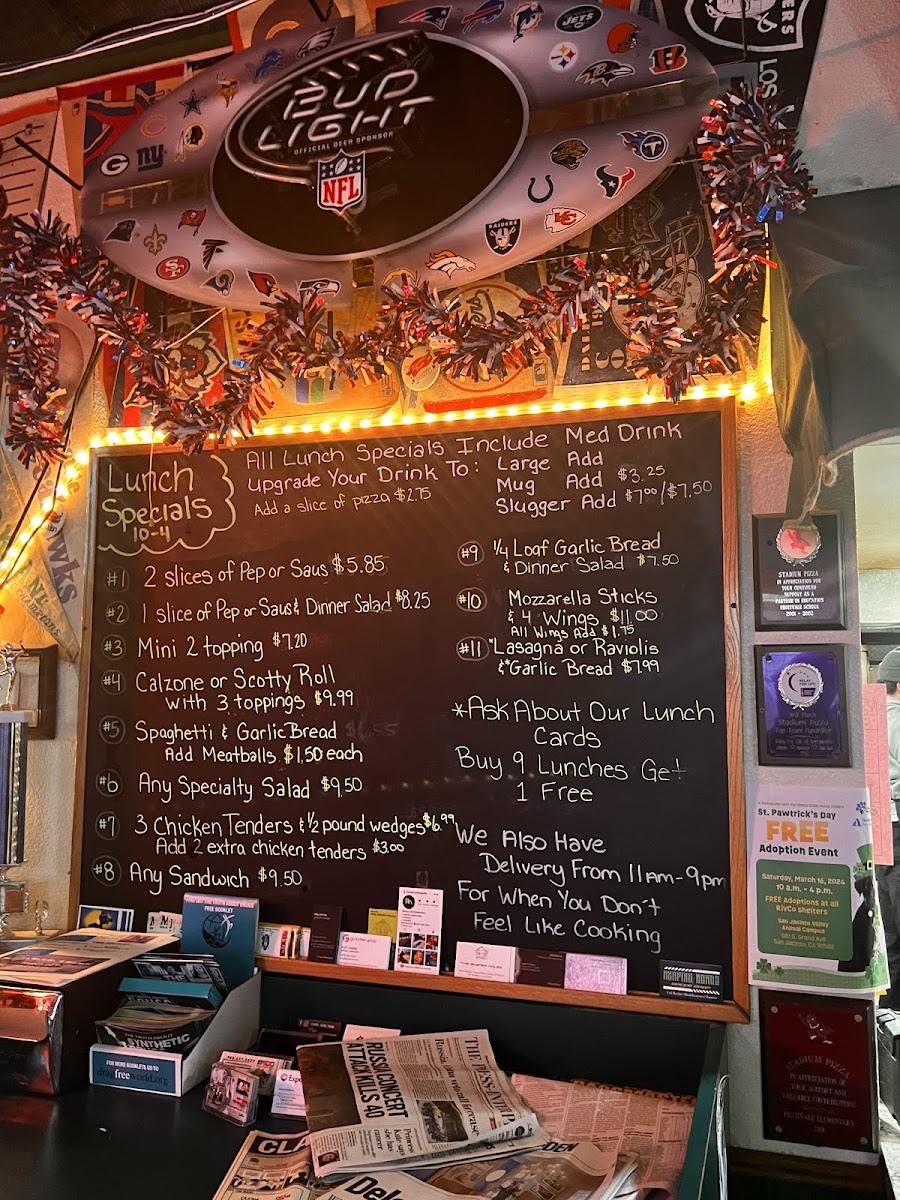 BUD
LIGHT
OFFICIAL BEER SPONSOR
NFL
JETS
RAIDERS
Lunch
Specials
10-4
All Lunch Specials Include Med Drink
Upgrade Your Drink To: Large Add
Mug Add $3.25
Slugger Add $7.00/$7.50
Add a slice of pizza $2.75
#1 2 slices of Pep or Saus $5.85
#2 1 slice of Pep or Saus & Dinner Salad $8.25
#3 Mini 2 topping $7.20
#4 Calzone or Scotty Roll
with 3 toppings $9.99
#5 Spaghetti & Garlic Bread
Add Meatballs $1.50 each
#6 Any Specialty Salad $9.50
#7 3 Chicken Tenders & 1/2 pound wedges $6.99
Add 2 extra chicken tenders $3.00
#8 Any Sandwich $9.50
#9 1/4 Loaf Garlic Bread
& Dinner Salad $7.50
#10 Mozzarella Sticks
& 4 Wings $11.00
All Wings Add $1.75
#11 *Lasagna or Raviolis
&*Garlic Bread $7.99
*Ask About Our Lunch
Cards
Buy 9 Lunches Get
1 Free
We Also Have
Delivery From 11AM-9pm
For When You Don't
Feel Like Cooking
STADIUM PIZZA
IN APPRECIATION FOR
YOUR CONTINUED
SUPPORT AS A
PARTNER IN EDUCATION
FRUITVALE SCHOOL
2001 - 2002
RELAY
FOR LIFE
Stadium Pizza
Top Team Fundraiser
St. Pawtrick's Day
FREE
Adoption Event
Saturday, March 16, 2024
10 a.m. - 4 p.m.
FREE Adoptions at all
RivCo Shelters
San Jacinto Valley
Animal Campus
581 S. Grand Ave
San Jacinto, CA 92582
STADIUM PIZZA
IN APPRECIATION OF
YOUR SUPPORT AND
VALUABLE CONTRIBUTIONS
FRUITVALE ELEMENTARY
FREE BOOKLET
THE TRUTH ABOUT
SYNTHETIC
FOR MORE BOOKLETS GO TO
drugfreeworld.org
RUSSIA CONCERT
ATTACK KILLS 40
THE PRESS
Princess
Kate says
she has
cancer